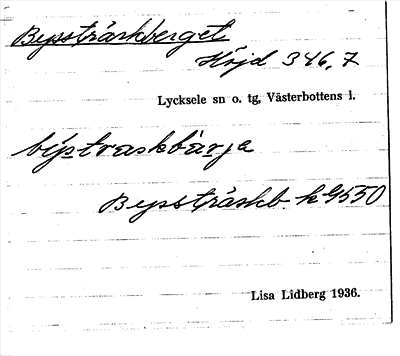 Byssträskberget
Höjd 346,7
Lycksele sn o. tg, Västerbottens l.
býstraskbàrja
Byssträskb. k 9550
Lisa Lidberg 1936.